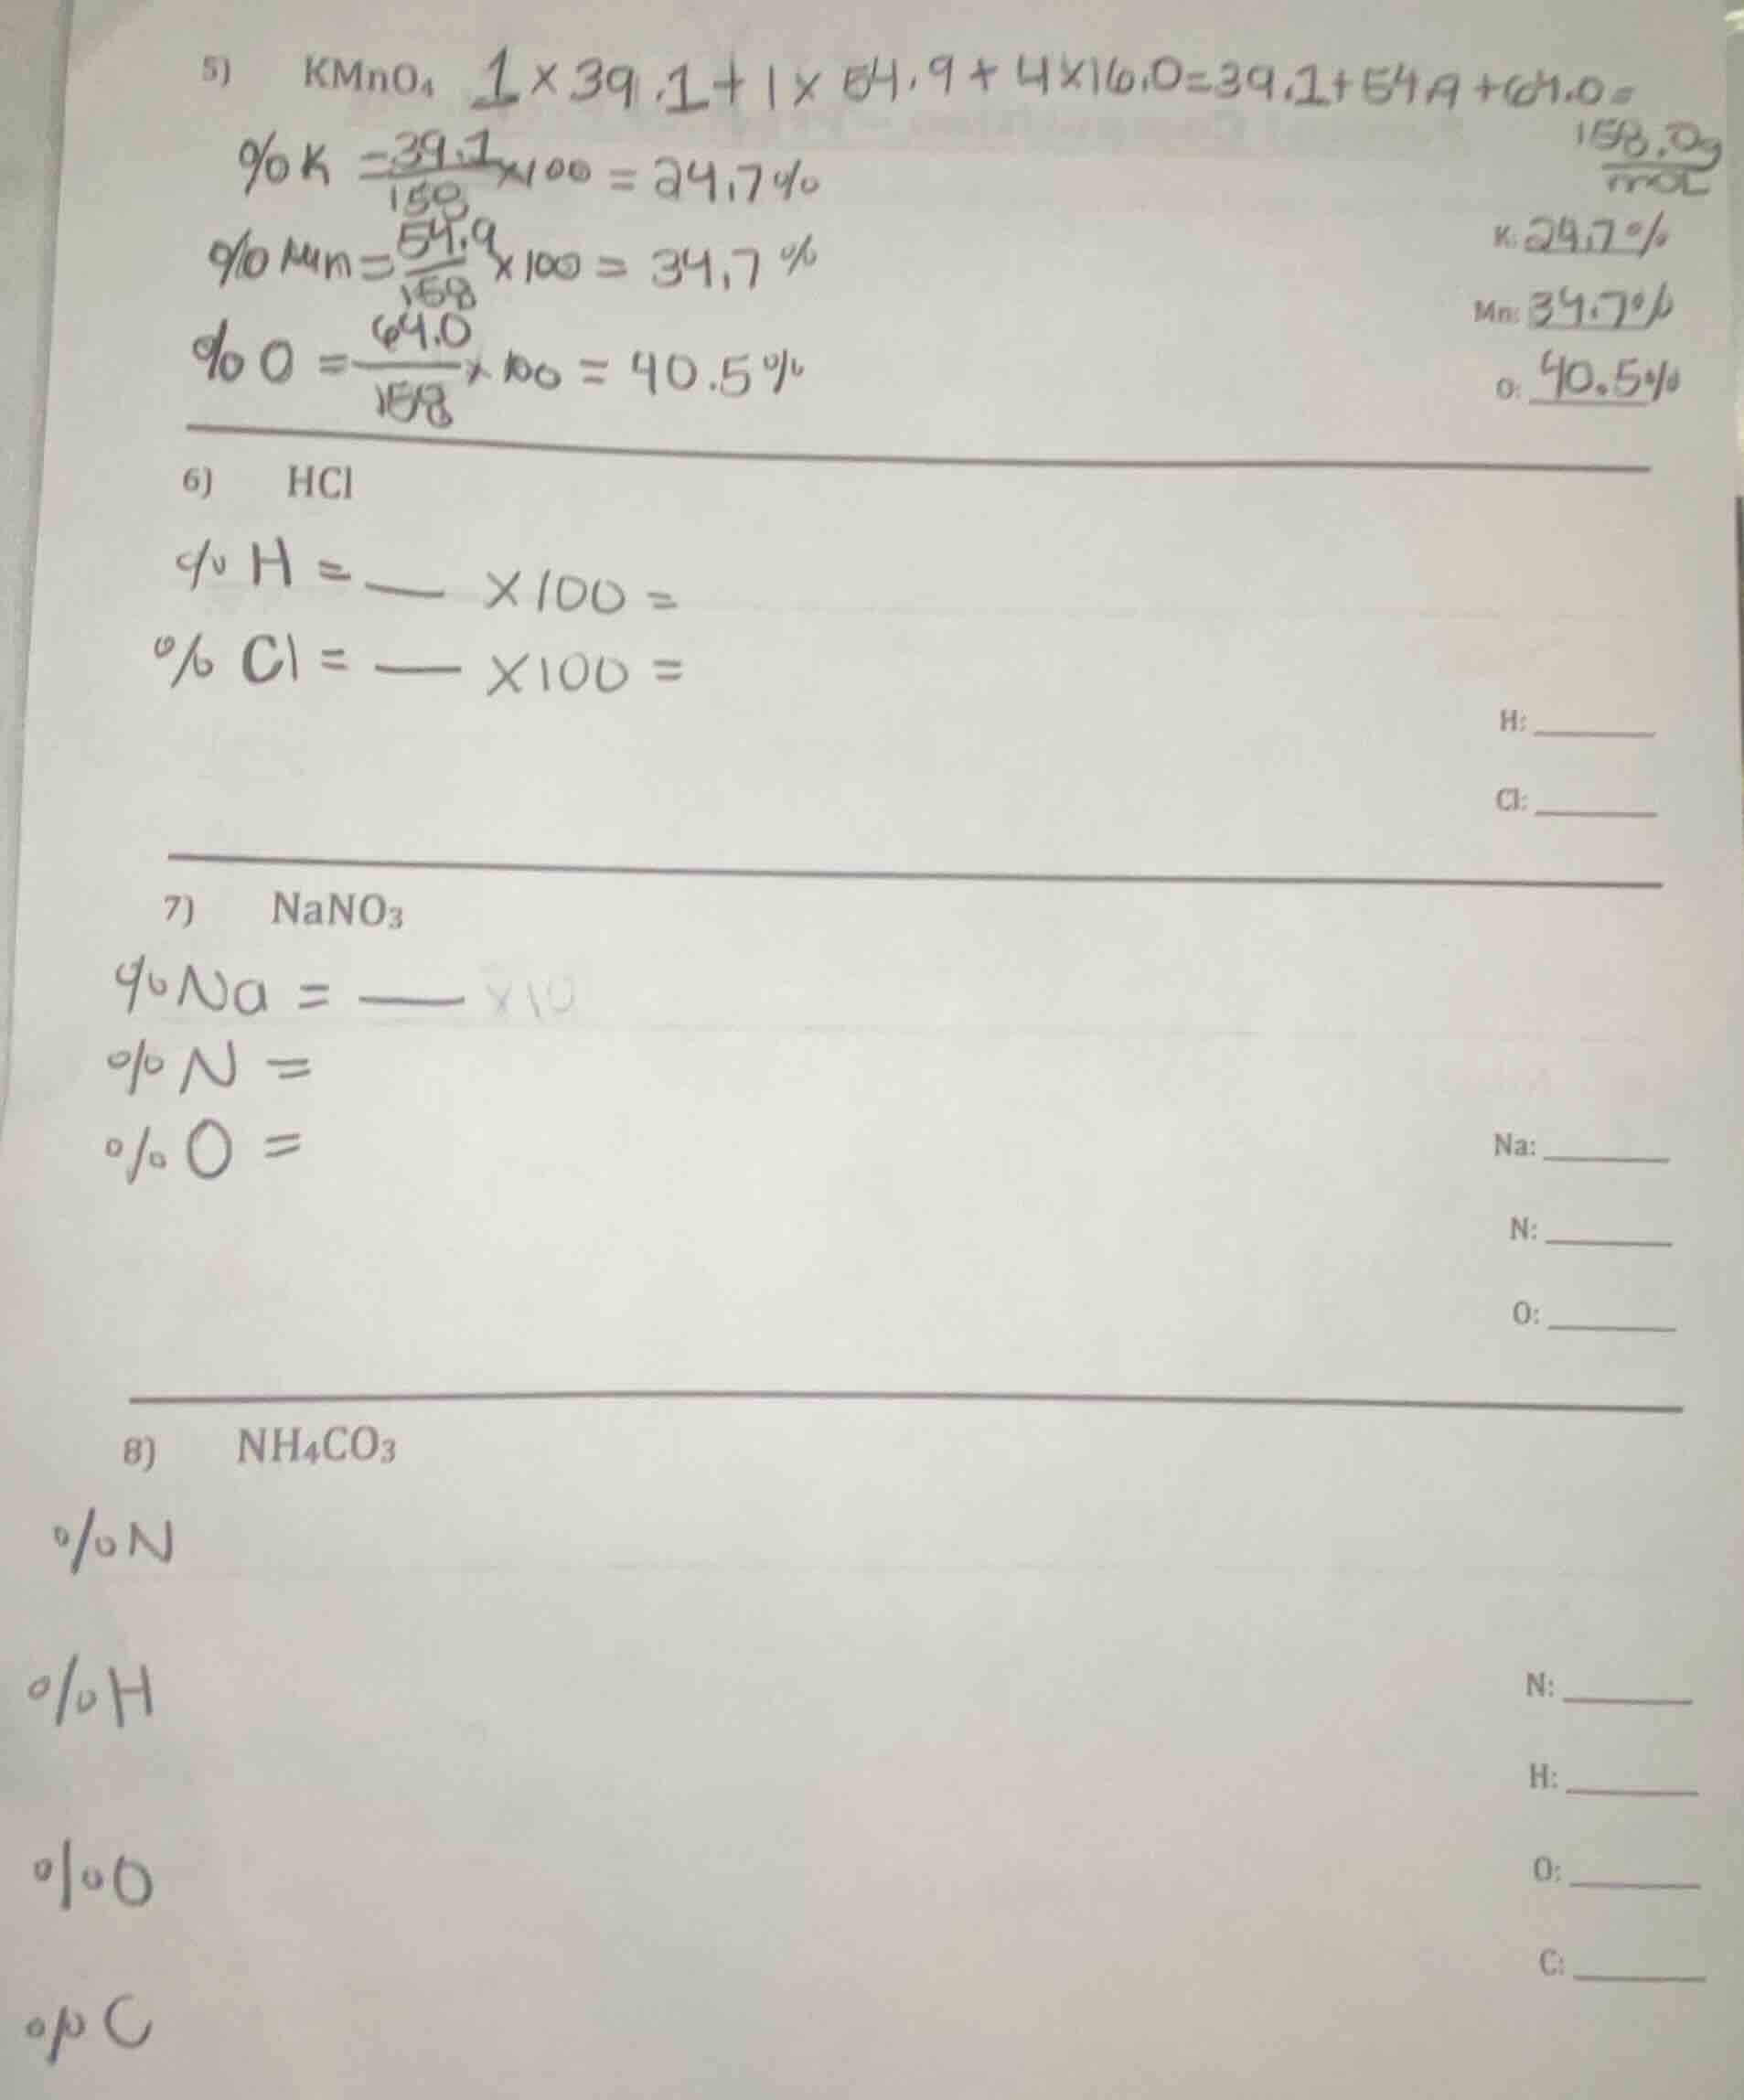 5) KMnO₄ 1 × 39.1 + 1 × 54.9 + 4×16.0 = 39.1 + 54.9 + 64.0 =
158.0 g/mol
%K = 39.1/158 × 100 = 24.7%
K: 24.7%
%Mn = 54.9/158 × 100 = 34.7%
Mn: 34.7%
%O = 64.0/158 × 100 = 40.5%
O: 40.5%
6) HCl
% H = __ ×100 =
% Cl = __ ×100 =
H: ____
Cl: ____
7) NaNO₃
%Na = __ ×10
%N =
%O =
Na: ____
N: ____
O: ____
8) NH₄CO₃
%N
%H
N: ____
H: ____
%O
O: ____
C: ____
%C